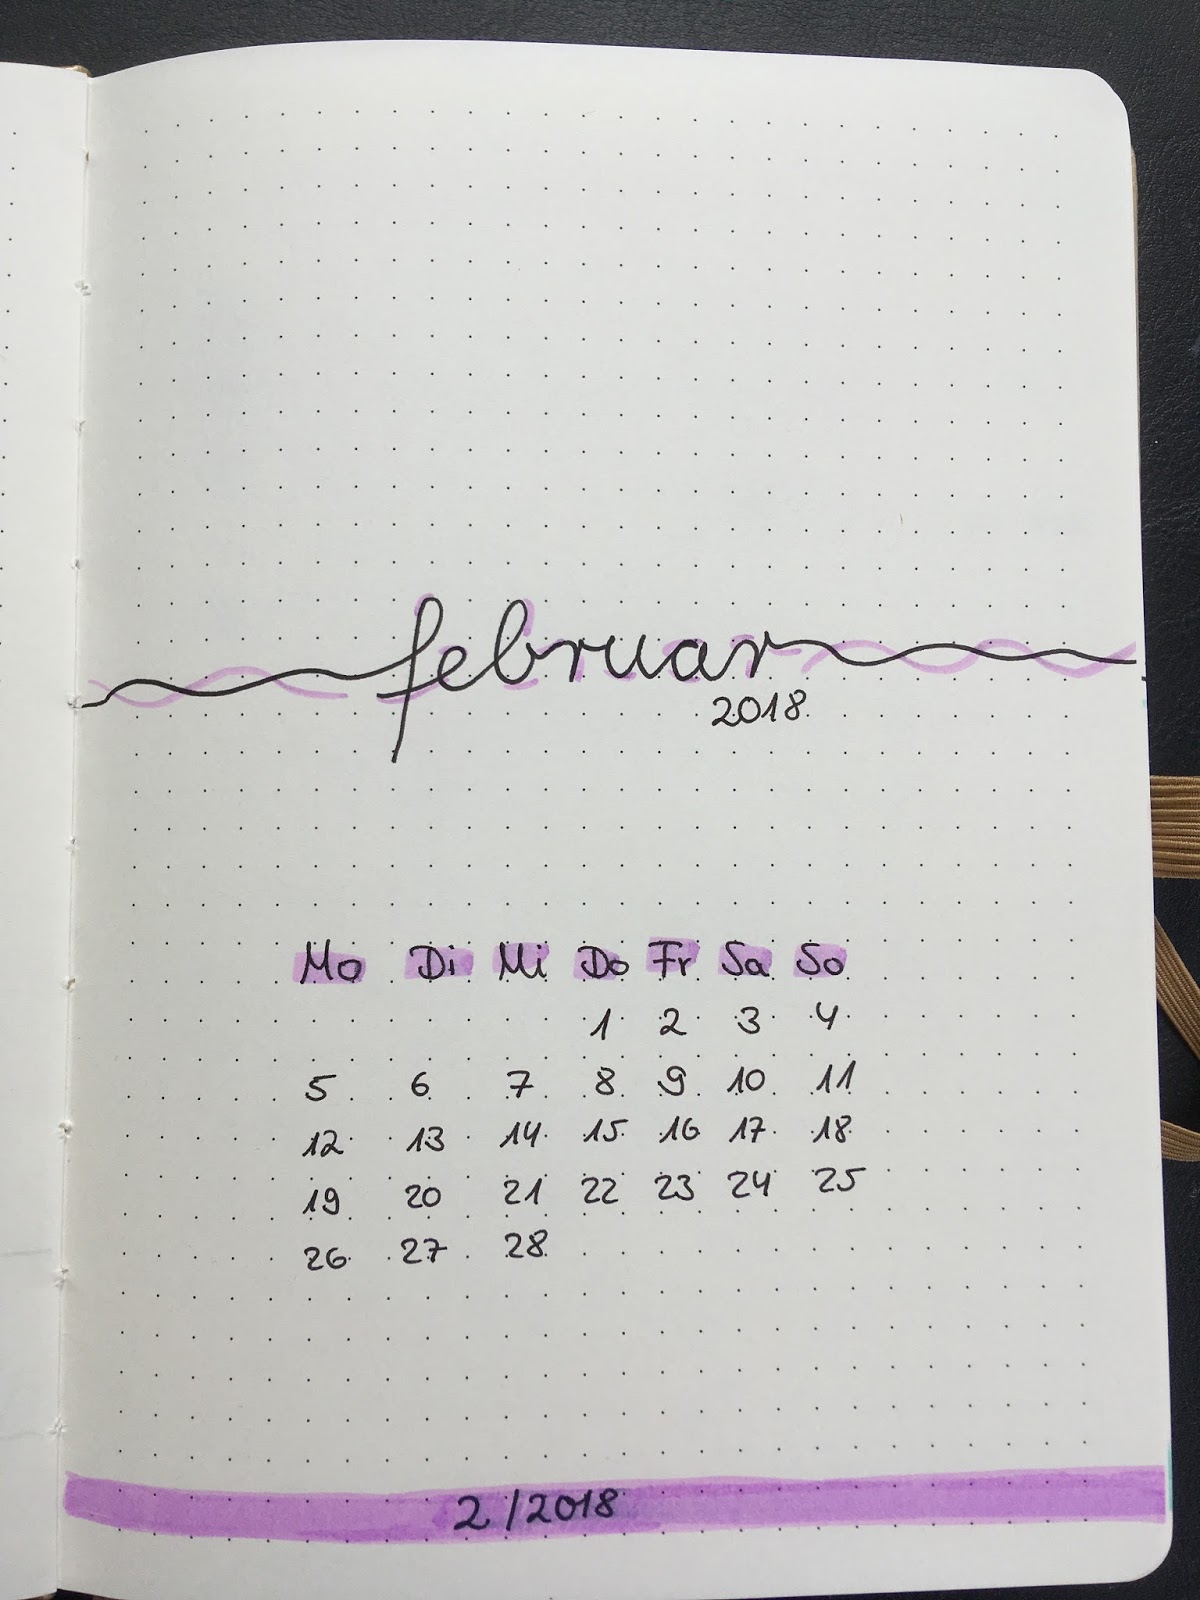 februar
2018
Mo Di Mi Do Fr Sa So
1 2 3 4
5 6 7 8 9 10 11
12 13 14 15 16 17 18
19 20 21 22 23 24 25
26 27 28
2/2018